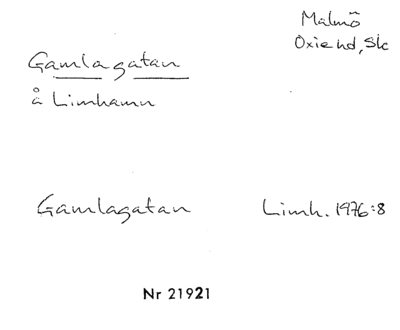 Malmö
Oxie hd, Sk
Gamlagatan
å Limhamn
Gamlagatan Limh. 1976:8
Nr 21921